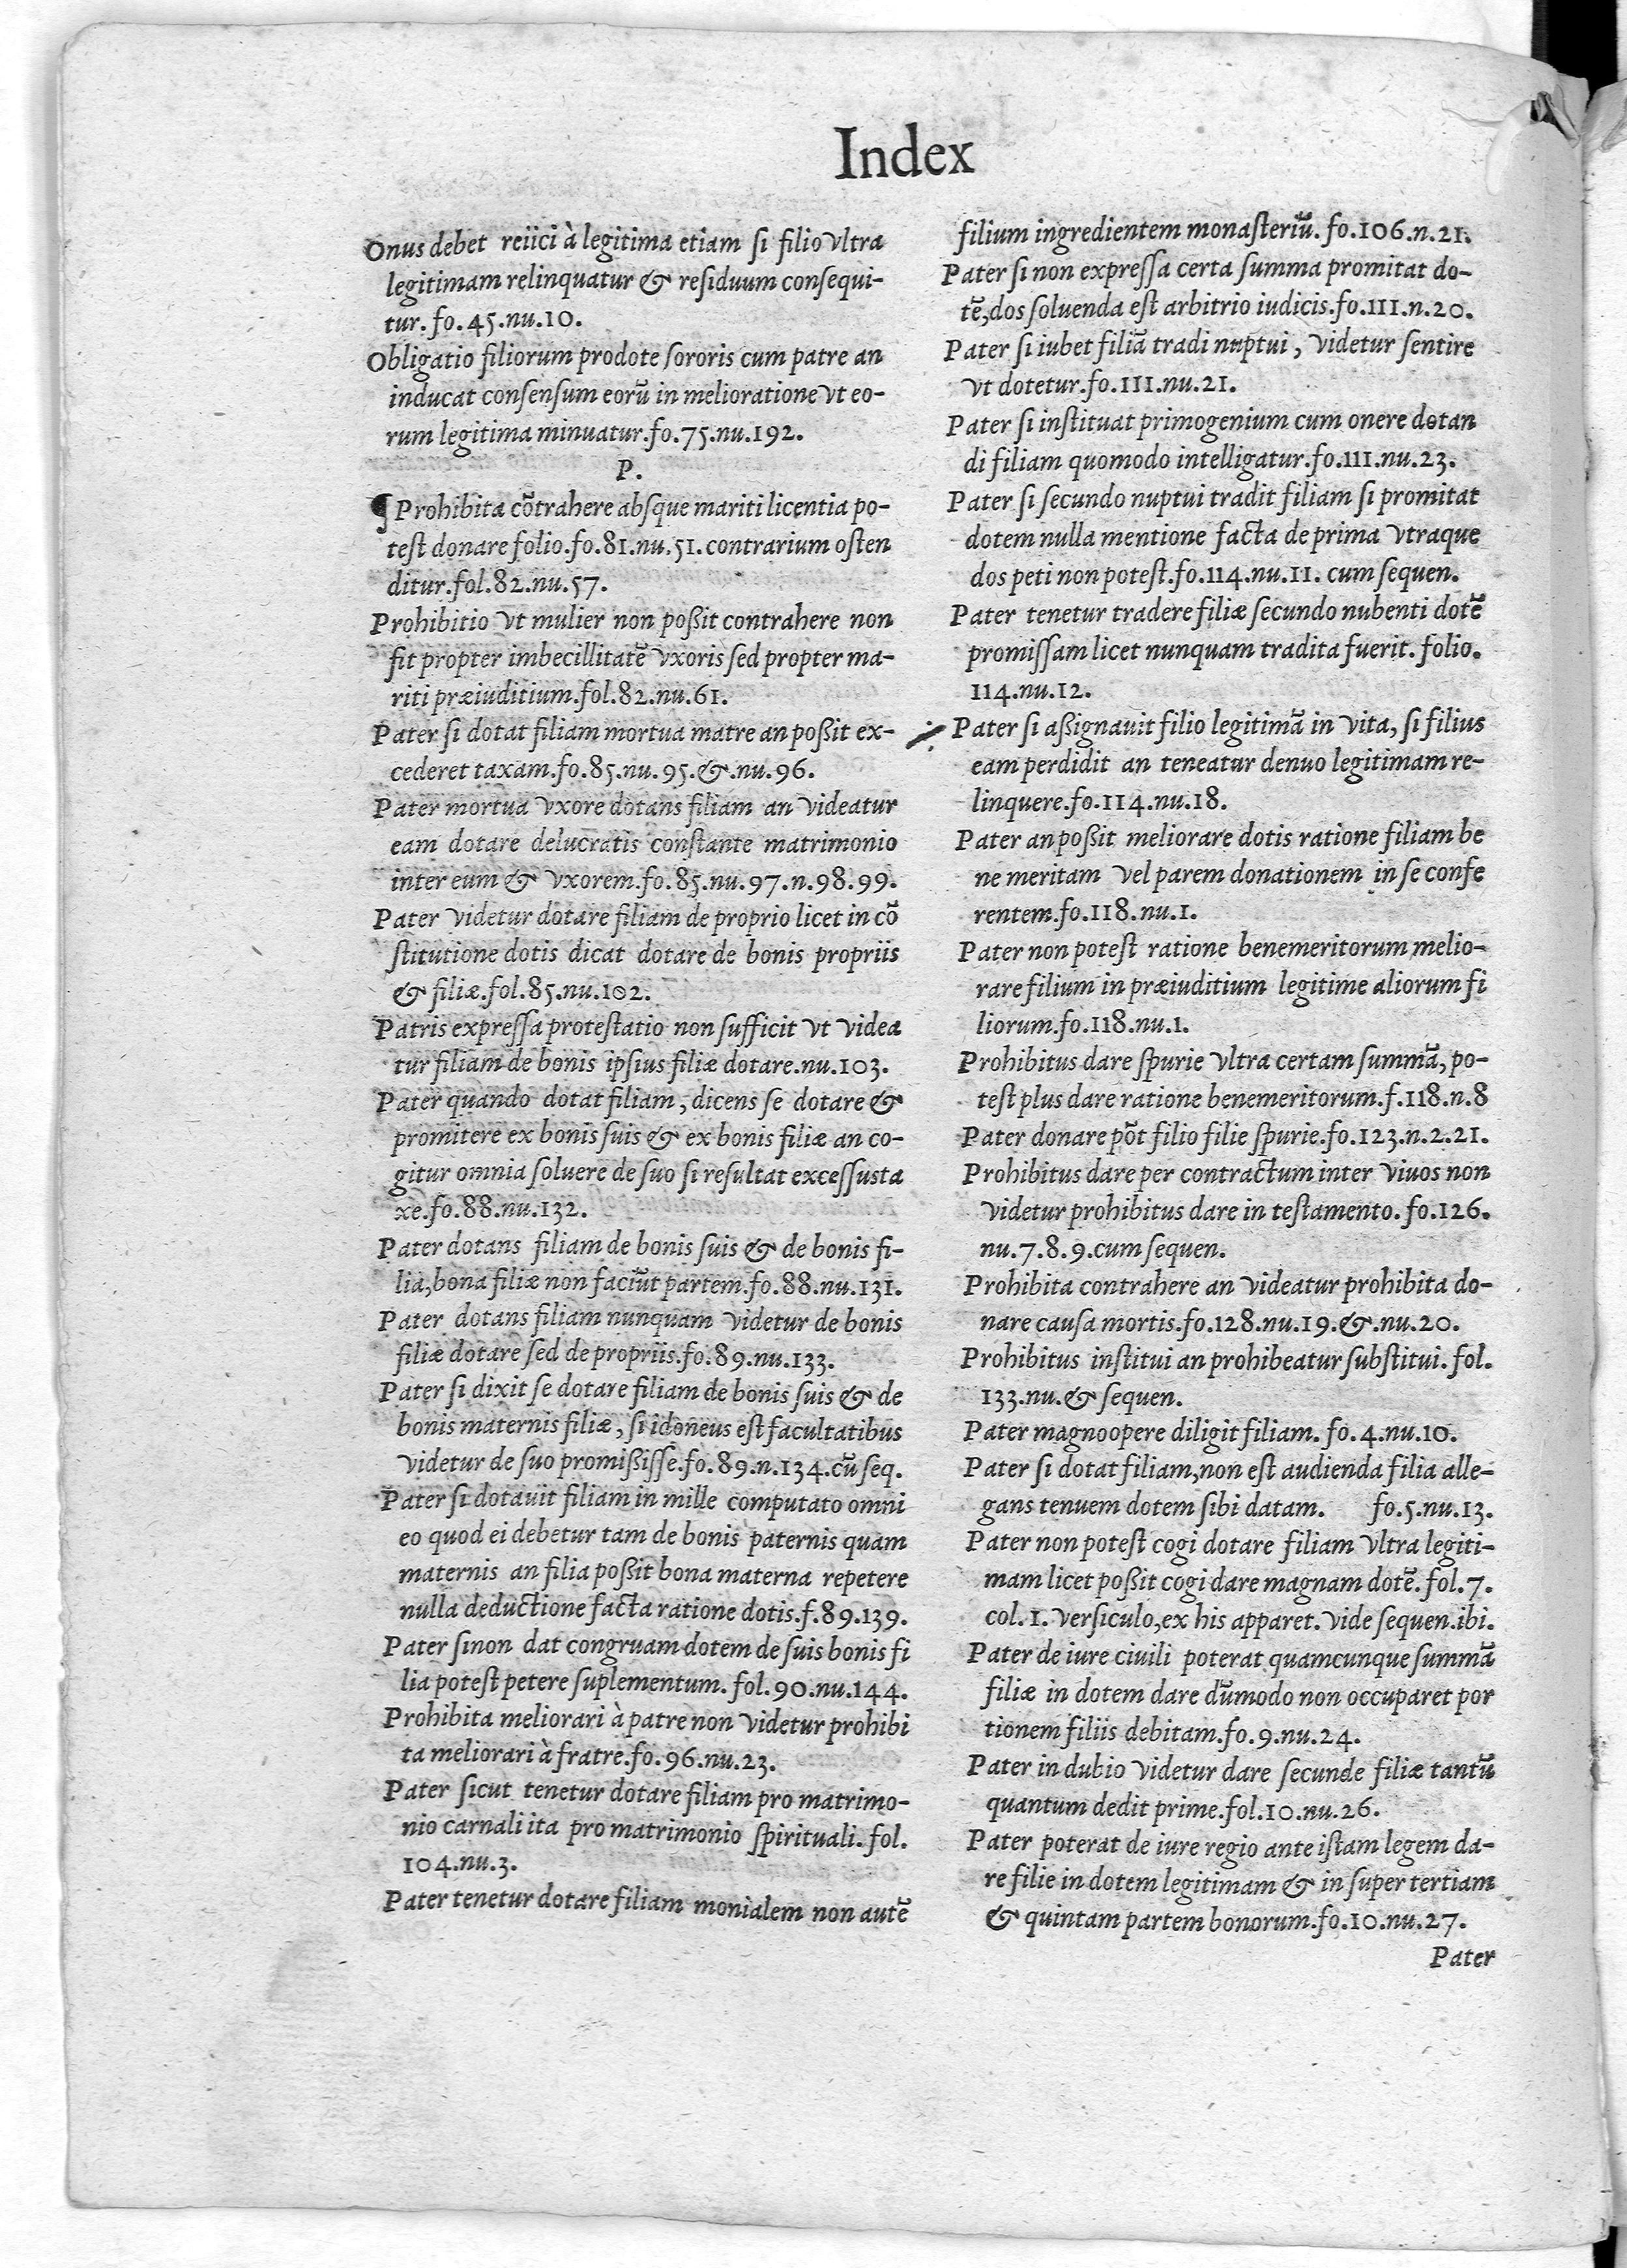 Index
Onus debet reiici à legitima etiam ſi filio vltra
legitimam relinquatur & reſiduum conſequi-
tur. fo. 45. nu. 10.
Obligatio filiorum prodote ſororis cum patre an
inducat conſenſum eorū in melioratione vt eo-
rum legitima minuatur. fo. 75. nu. 192.
P.
¶ Prohibita cōtrahere abſque mariti licentia po-
teſt donare folio. fo. 81. nu. 51. contrarium oſten
ditur. fol. 82. nu. 57.
Prohibitio vt mulier non poßit contrahere non
fit propter imbecillitatē vxoris ſed propter ma-
riti præiuditium. fol. 82. nu. 61.
Pater ſi dotat filiam mortua matre an poßit ex-
cederet taxam. fo. 85. nu. 95. &. nu. 96.
Pater mortua vxore dotans filiam an videatur
eam dotare delucratis conſtante matrimonio
inter eum & vxorem. fo. 85. nu. 97. n. 98. 99.
Pater videtur dotare filiam de proprio licet in cō
ſtitutione dotis dicat dotare de bonis propriis
& filiæ. fol. 85. nu. 102.
Patris expreſſa proteſtatio non ſufficit vt videa
tur filiam de bonis ipſius filiæ dotare. nu. 103.
Pater quando dotat filiam, dicens ſe dotare &
promitere ex bonis ſuis & ex bonis filiæ an co-
gitur omnia ſoluere de ſuo ſi reſultat exceſſusta
xe. fo. 88. nu. 132.
Pater dotans filiam de bonis ſuis & de bonis fi-
lia, bona filiæ non faciūt partem. fo. 88. nu. 131.
Pater dotans filiam nunquam videtur de bonis
filiæ dotare ſed de propriis. fo. 89. nu. 133.
Pater ſi dixit ſe dotare filiam de bonis ſuis & de
bonis maternis filiæ, ſi idoneus eſt facultatibus
videtur de ſuo promißiſſe. fo. 89. n. 134. cū ſeq.
Pater ſi dotauit filiam in mille computato omni
eo quod ei debetur tam de bonis paternis quam
maternis an filia poßit bona materna repetere
nulla deductione facta ratione dotis. f. 89. 139.
Pater ſinon dat congruam dotem de ſuis bonis fi
lia poteſt petere ſuplementum. fol. 90. nu. 144.
Prohibita meliorari à patre non videtur prohibi
ta meliorari à fratre. fo. 96. nu. 23.
Pater ſicut tenetur dotare filiam pro matrimo-
nio carnali ita pro matrimonio ſpirituali. fol.
104. nu. 3.
Pater tenetur dotare filiam monialem non autē
filium ingredientem monaſteriū. fo. 106. n. 21.
Pater ſi non expreſſa certa ſumma promitat do-
tē, dos ſoluenda eſt arbitrio iudicis. fo. 111. n. 20.
Pater ſi iubet filiā tradi nuptui, videtur ſentire
vt dotetur. fo. 111. nu. 21.
Pater ſi inſtituat primogenium cum onere dotan
di filiam quomodo intelligatur. fo. 111. nu. 23.
Pater ſi ſecundo nuptui tradit filiam ſi promitat
dotem nulla mentione facta de prima vtraque
dos peti non poteſt. fo. 114. nu. 11. cum ſequen.
Pater tenetur tradere filiæ ſecundo nubenti dotē
promiſſam licet nunquam tradita fuerit. folio.
114. nu. 12.
Pater ſi aßignauit filio legitimā in vita, ſi filius
eam perdidit an teneatur denuo legitimam re-
linquere. fo. 114. nu. 18.
Pater an poßit meliorare dotis ratione filiam be
ne meritam vel parem donationem in ſe confe
rentem. fo. 118. nu. 1.
Pater non poteſt ratione benemeritorum melio-
rare filium in præiuditium legitime aliorum fi
liorum. fo. 118. nu. 1.
Prohibitus dare ſpurie vltra certam ſummā, po-
teſt plus dare ratione benemeritorum. f. 118. n. 8
Pater donare pōt filio filie ſpurie. fo. 123. n. 2. 21.
Prohibitus dare per contractum inter viuos non
videtur prohibitus dare in teſtamento. fo. 126.
nu. 7. 8. 9. cum ſequen.
Prohibita contrahere an videatur prohibita do-
nare cauſa mortis. fo. 128. nu. 19. &. nu. 20.
Prohibitus inſtitui an prohibeatur ſubſtitui. fol.
133. nu. & ſequen.
Pater magnoopere diligit filiam. fo. 4. nu. 10.
Pater ſi dotat filiam, non eſt audienda filia alle-
gans tenuem dotem ſibi datam. fo. 5. nu. 13.
Pater non poteſt cogi dotare filiam vltra legiti-
mam licet poßit cogi dare magnam dotē. fol. 7.
col. 1. verſiculo, ex his apparet. vide ſequen. ibi.
Pater de iure ciuili poterat quamcunque ſummā
filiæ in dotem dare dūmodo non occuparet por
tionem filiis debitam. fo. 9. nu. 24.
Pater in dubio videtur dare ſecunde filiæ tantū
quantum dedit prime. fol. 10. nu. 26.
Pater poterat de iure regio ante iſtam legem da-
re filie in dotem legitimam & in ſuper tertiam
& quintam partem bonorum. fo. 10. nu. 27.
Pater